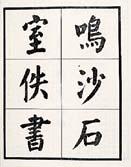 鳴沙石
室佚書